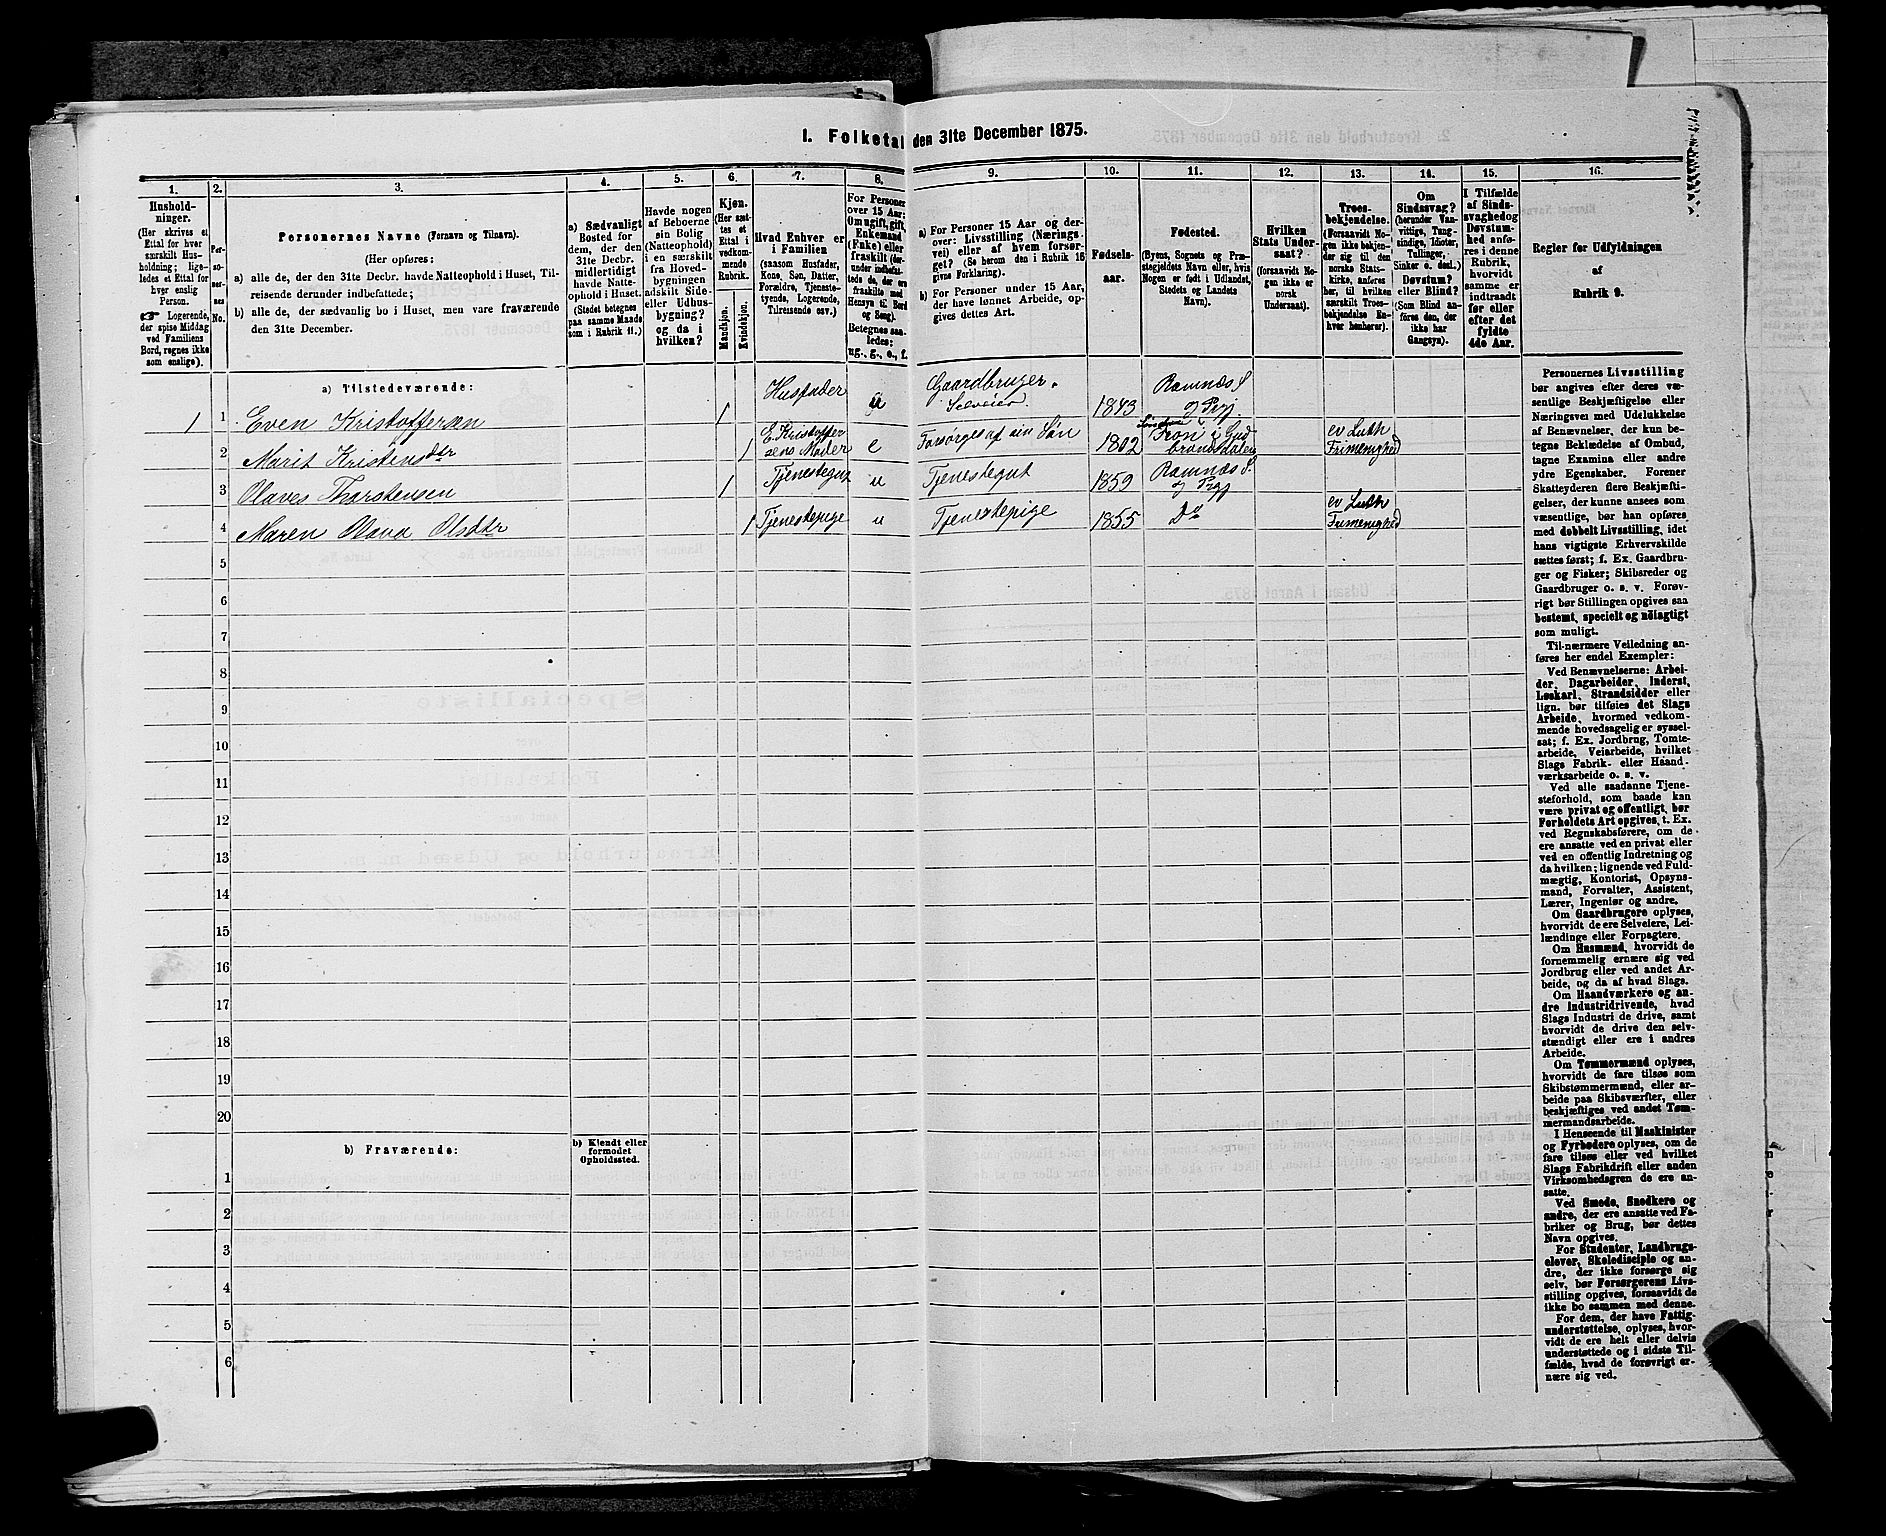 1. Folketal den 31te December 1875.
1. 2. 3. 4. 5. 6. 7. 8. 9. 10. 11. 12. 13. 14. 15. 16.
Hushold-
ninger.
(Her skrives et
Ettal for hver
særskilt Hus-
holdning; lige-
ledes et Ettal for
hver enslig
Person.
☛ Logerende,
der spise Middag
ved Familiens
Bord, regnes ikke
som enslige).
Per-
so-
ner-
nes
No.
Personernes Navne (Fornavn og Tilnavn).
(Her opføres:
a) alle de, der den 31te Decbr. havde Natteophold i Huset, Til-
reisende derunder indbefattede;
b) alle de, der sædvanlig bo i Huset, men vare fraværende
den 31te December.
a) Sædvanligt
Bosted for
dem, der den
31te Decbr.
midlertidigt
havde Natte-
ophold i Huset.
(Stedet betegnes
paa samme Maade
som i Rubrik 11.)
Havde nogen
af Beboerne
sin Bolig
(Natteophold)
i en særskilt
fra Hoved-
bygningen
adskilt Side-
eller Udhus-
bygning?
og da i
hvilken?
Kjøn.
(Her sæt-
tes et
Ettal i
vedkom-
mende
Rubrik.
Mandkjøn.
Kvindekjøn.
Hvad Enhver er
i Familien
(saasom Husfader,
Kone, Søn, Datter,
Forældre, Tjeneste-
tyende, Logerende,
Tilreisende osv.)
For Personer
over 15 Aar:
Om ugift, gift,
Enkemand
(Enke) eller
fraskilt (der-
under indbefat-
tede de, der ere
fraskilte med
Hensyn til Bord
og Seng).
Betegnes saa-
ledes:
ug., g., e., f.
a) For Personer 15 Aar og der-
over: Livsstilling (Nærings-
vei) eller af hvem forsør-
get? (Se herom den i Rubrik 16
givne Forklaring).
b) For Personer under 15 Aar,
der have lønnet Arbeide, op-
gives dettes Art.
Fødsels-
aar.
Fødested.
(Byens, Sognets og Præ-
stegjeldets Navn eller, hvis
Nogen er født i Udlandet,
Stedets og Landets
Navn).
Hvilken
Stats Under-
saat?
(forsaavidt No-
gen ikke er
norsk
Undersaat).
Troes-
bekjendelse.
(Forsaavidt No-
gen ikke bekjen-
der sig til den
norske Stats-
kirke, anføres
her, til hvilken
særskilt Troes-
bekjendelse En-
hver henhører).
Om
Sindssvag?
(herunder Van-
vittige, Tung-
sindige, Idioter,
Tullinger,
Sinker o. desl.)
Døvstum?
eller Blind?
(Som Blind an-
føres den, der
ikke har
Gangsyn).
I Tilfælde
af Sinds-
svaghed og
Døvstum-
hed anfø-
res i denne
Rubrik,
hvorvidt
samme er
indtraadt
før eller
efter det
fyldte
4de Aar.
Regler for Udfyldningen
af
Rubrik 9.
a) Tilstedeværende:
1 1 Even Kristoffersen 1 Husfader u Gaardbruger. Selveier. 1843 Ramnæs S. og Prgj.
2 Marit Kristensdtr 1 E. Kristoffersens Moder e Forsørges af sin Søn 1802 Fron i Gudbrandsdalen ev Luth Frimenighed
3 Olaves Thorstensen 1 Tjenestegut u Tjenestegut 1859 Ramnæs S. og Prgj
4 Maren Olava Olsdtr 1 Tjenestepige u Tjenestepige 1855 Do ev Luth Frimenighed
5
6
7
8
9
10
11
12
13
14
15
16
17
18
19
20
b) Fraværende:
b) Kjendt eller
formodet
Opholdssted.
1
2
3
4
5
6
Personernes Livsstilling
bør angives efter deres væ-
sentlige Beskjæftigelse eller
Næringsvei med Udelukkelse
af Benævnelser, der kun be-
tegne Beklædelse af Ombud,
tagne Examina eller andre
ydre Egenskaber. Forener
Skatteyderen flere Beskjæfti-
gelser, der kunne ansees som
væsentlige, bør han opføres
med dobbelt Livsstilling, idet
hans vigtigste Erhvervskilde
sættes først; f. Ex. Gaardbru-
ger og Fisker; Skibsreder og
Gaardbruger o. s. v. Forøv-
rigt bør Stillingen opgives saa
bestemt, specielt og nøiagtigt
som muligt.
Til nærmere Veiledning an-
føres her endel Exempler:
Ved Benævnelserne: Arbei-
der, Dagarbeider, Inderst,
Løskarl, Strandsidder eller
lign. bør tilføies det Slags
Arbeide, hvormed vedkom-
mende hovedsagelig er syssel-
sat; f. Ex. Jordbrug, Tomte-
arbeide, Veiarbeide, hvilket
Slags Fabrik- eller Haand-
værksarbeide o. s. v.
Ved alle saadanne Tjene-
steforhold, som baade kan
være privat og offentligt, bør
Forholdets Art opgives, t. Ex.
ved Regnskabsførere, om de
ere ansatte ved en privat eller
ved en offentlig Indretning og
da hvilken; lignende ved Fuld-
mægtig, Kontorist, Opsyns-
mand, Forvalter, Assistent,
Lærer, Ingeniør og andre.
Om Gaardbrugere oplyses,
hvorvidt de ere Selveiere, Lei-
lændinge eller Forpagtere.
Om Husmænd, hvorvidt de
fornemmelig ernære sig ved
Jordbrug eller ved andet Ar-
beide, og da af hvad Slags.
Om Haandværkere og an-
dre Industridrivende, hvad
Slags Industri de drive, samt
hvorvidt de drive den selv-
stændigt eller ere i andres
Arbeide.
Om Tømmermænd oplyses,
hvorvidt de fare tilsøs som
Skibstømmermænd, eller ar-
beide paa Skibsværfter, eller
beskjæftiges ved andet Tøm-
mermandsarbeide.
I Henseende til Maskinister
og Fyrbødere oplyses, om de
fare tilsøs eller ved hvilket
Slags Fabrikdrift eller anden
Virksomhedsgren de ere an-
satte.
Ved Smede, Snedkere og
andre, der ere ansatte ved Fa-
briker og Brug, bør dettes
Navn opgives.
For Studenter, Landbrugs-
elever, Skoledisciple og an-
dre, der ikke forsørge sig
selv, bør Forsørgerens Livs-
stilling opgives, forsaavidt de
ikke bo sammen med denne.
For dem, der have Fattig-
understøttelse, oplyses, hvor-
vidt de ere helt eller delvis
understøttede og i sidste Til-
fælde, hvad de forøvrigt er-
nære sig ved.